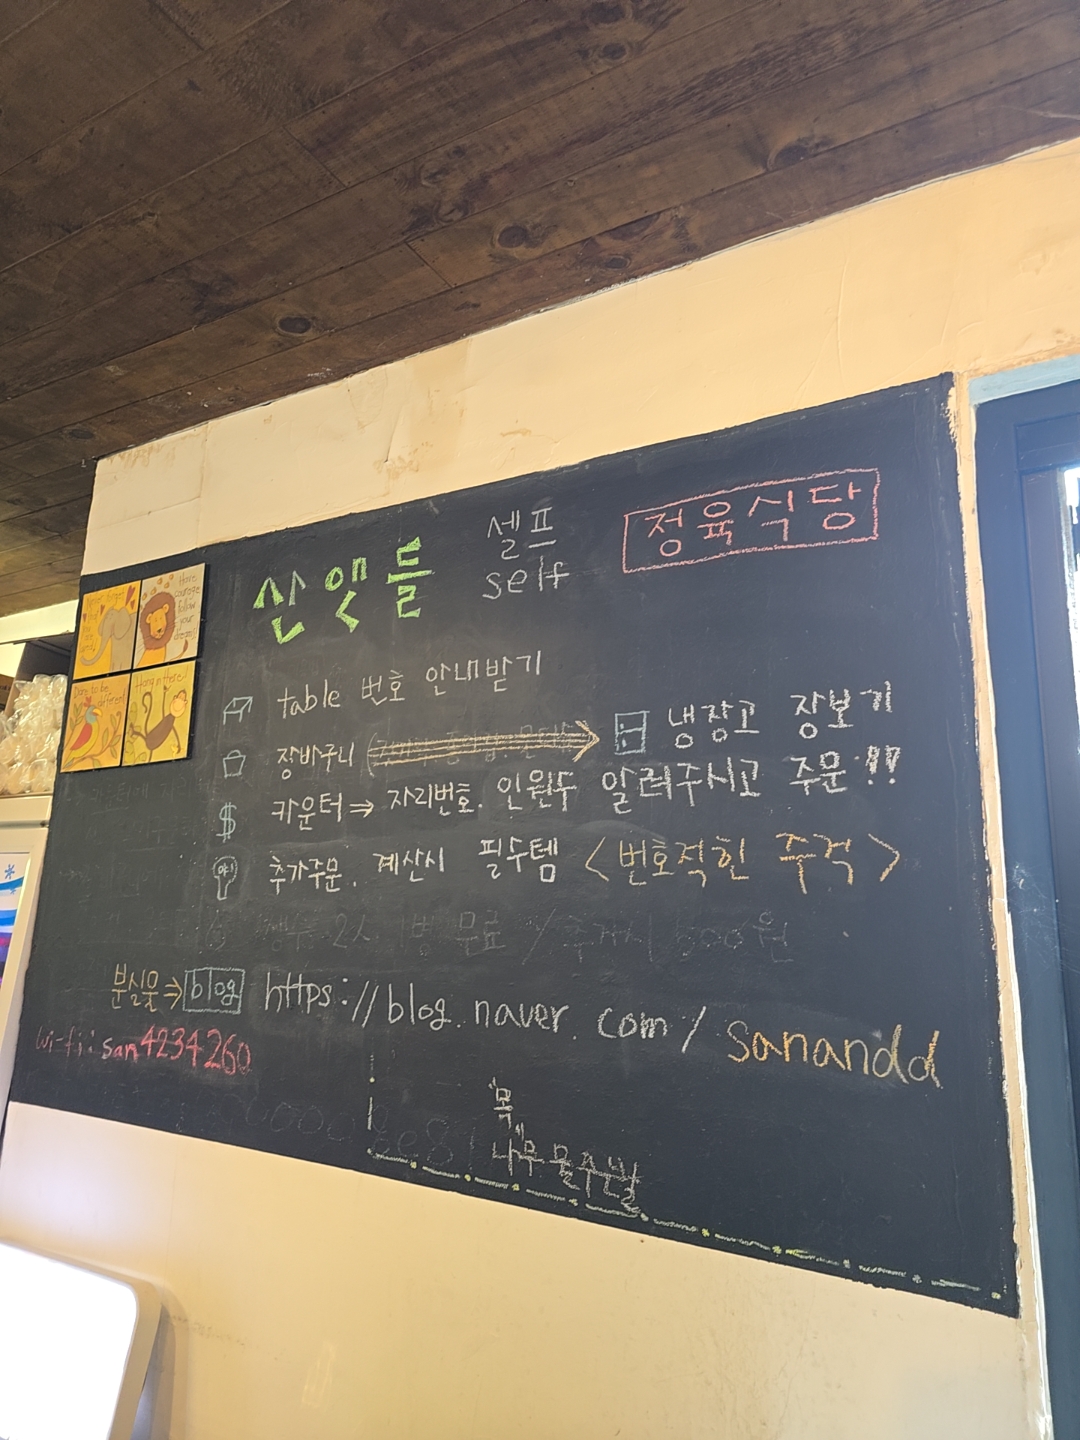 산앳들 셀프 self 정육식당
table 번호 안내받기
장바구니 냉장고 장보기
카운터⇒ 자리번호. 인원수 알려주시고 주문!!
추가주문. 계산시 필수템 <번호적힌 주걱>
2人 1병 무료 / 추가시 500원
분실물⇒ blog https://blog.naver.com/sanandd
wi-fi: san4234260
"목"
나무 물주는날
Never forget that you are loved
Have courage follow your dreams!
Dare to be different
Hang in there!